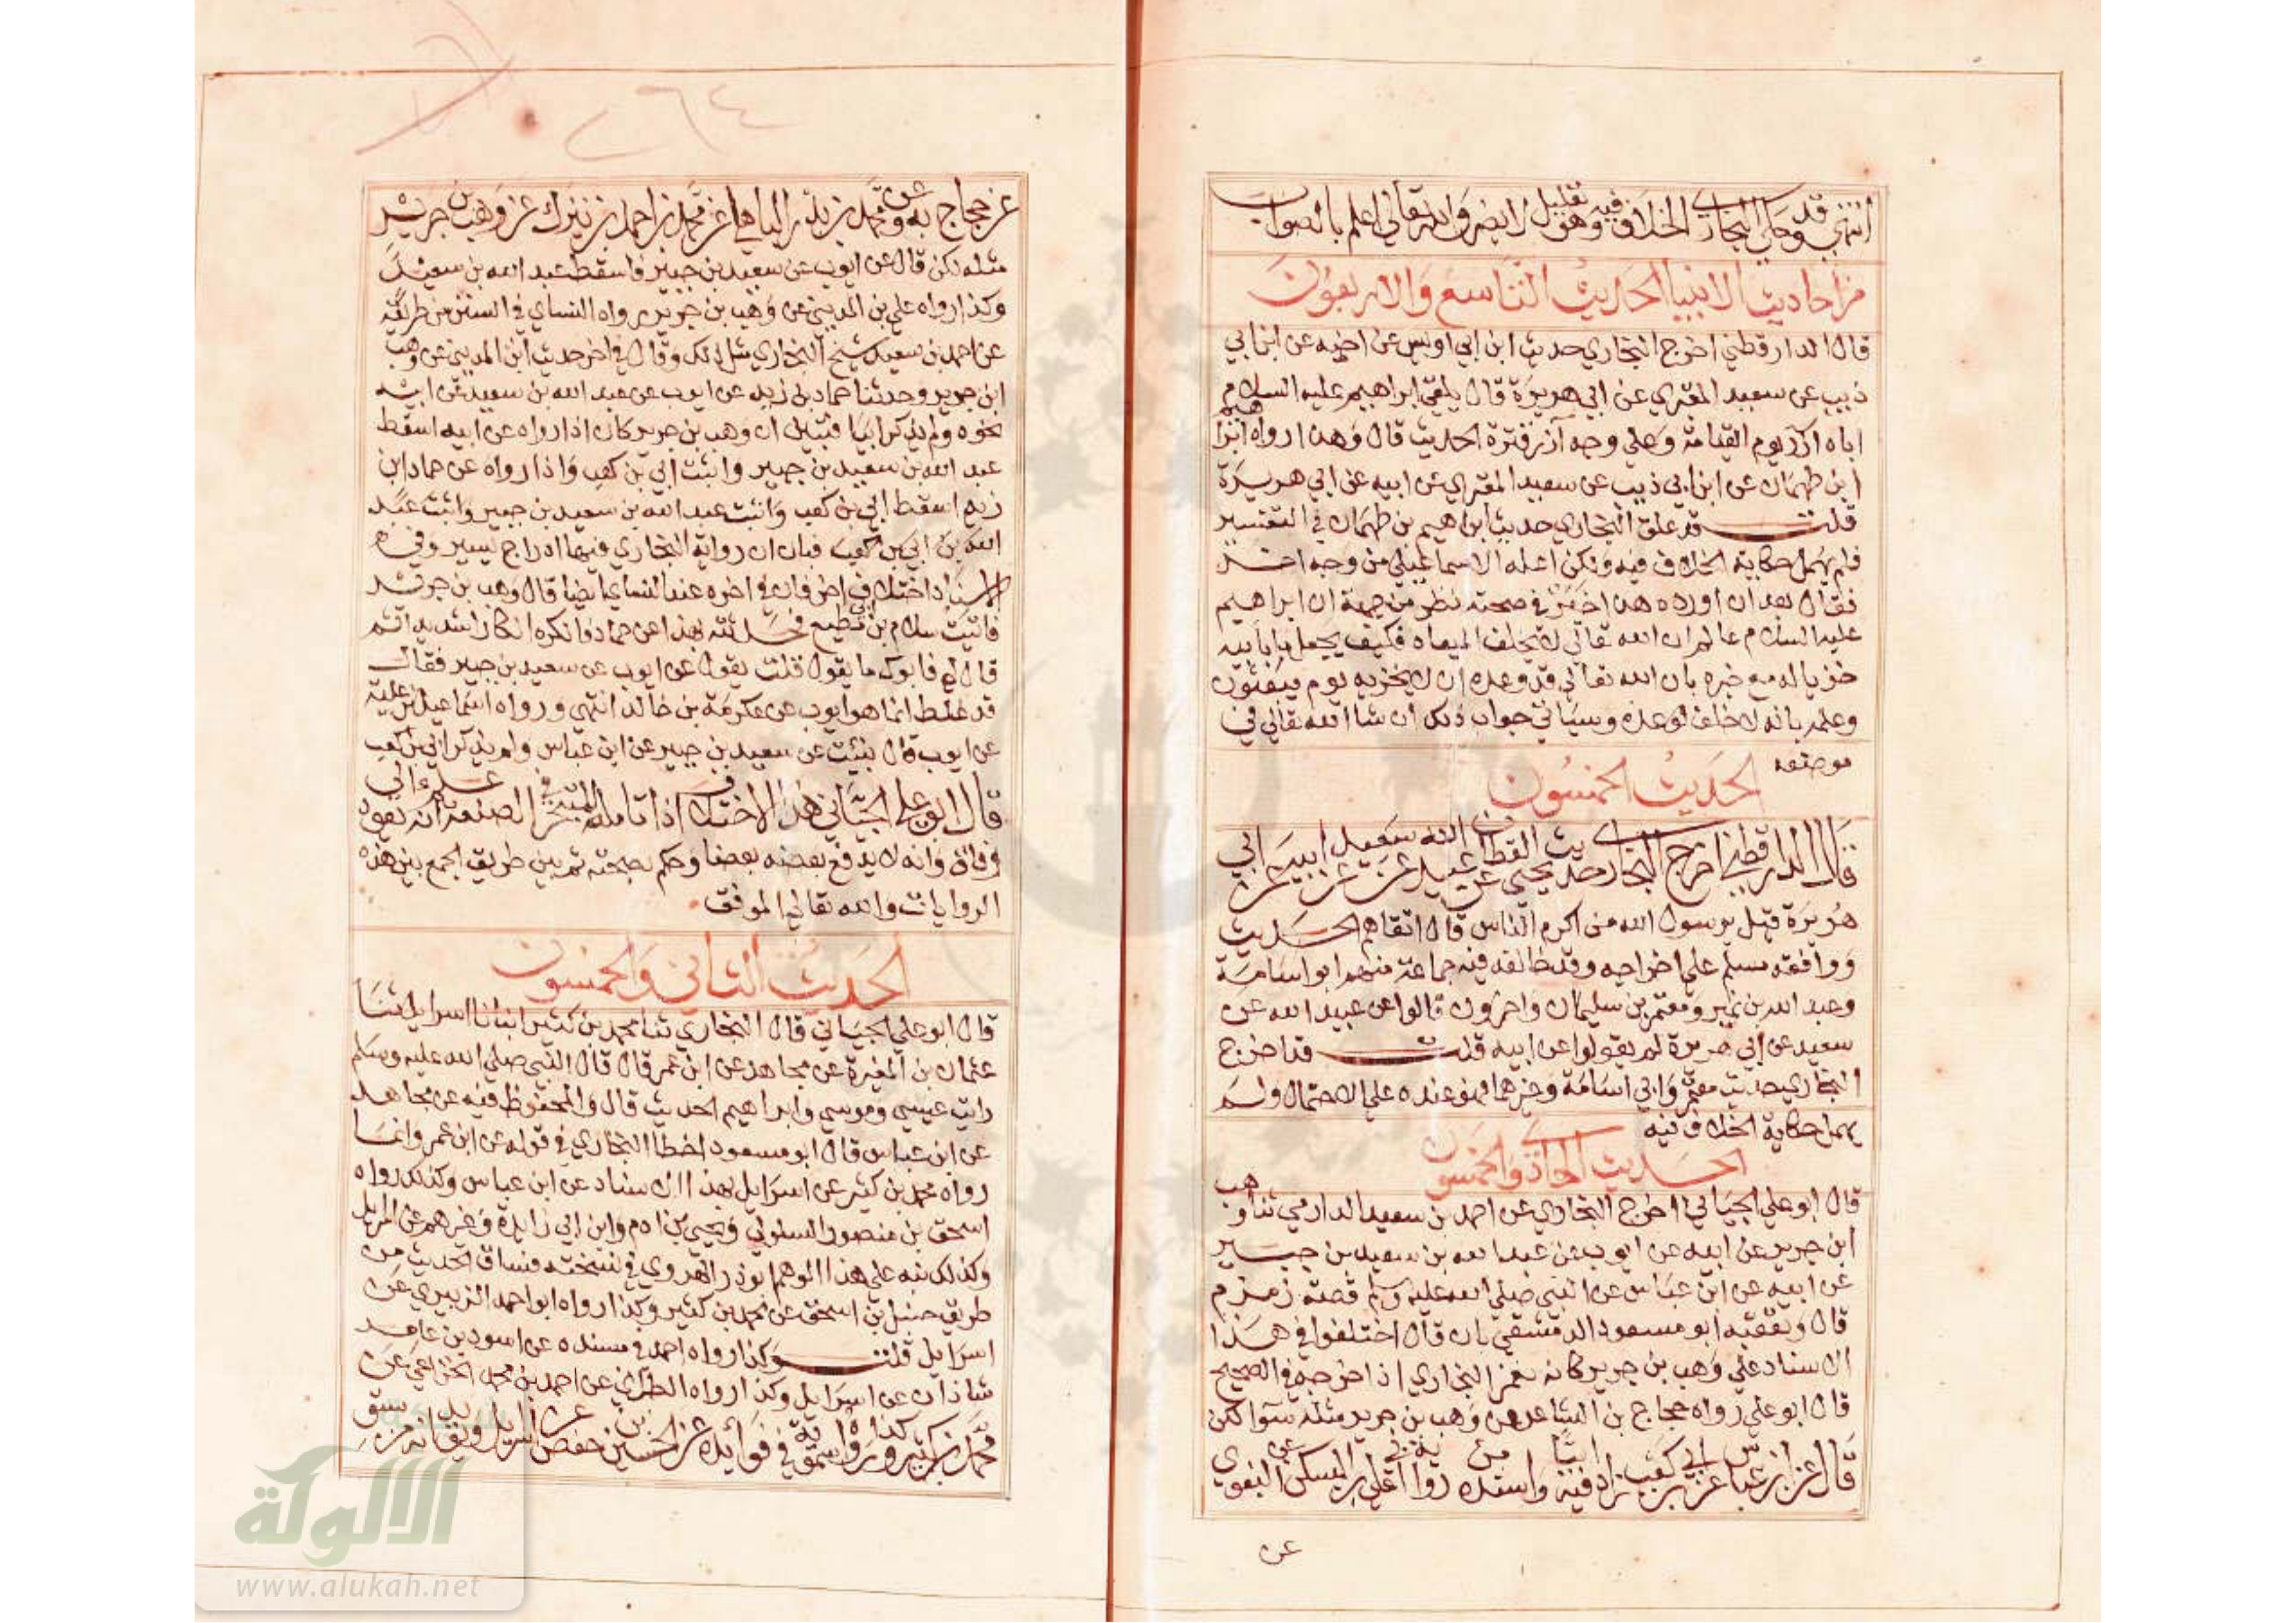 انتهى وقد حكى البخاري الخلاف فيه وهو تعليل لا يضر والله تعالى اعلم بالصواب
من احاديث الانبيا الحديث التاسع والاربعون
قال الدارقطني اخرج البخاري حديث ابن ابي اويس عن اخيه عن ابن ابي
ذيب عن سعيد المقبري عن ابي هريرة قال يلقى ابراهيم عليه السلام
اباه آزر يوم القيامة وعلى وجه آزر قترة الحديث قال وهذا رواه ابراهيم
ابن طهمان عن ابن ابي ذيب عن سعيد المقبري عن ابيه عن ابي هريرة
قلت قد علق البخاري حديث ابراهيم بن طهمان في التفسير
فلم يهمل حكاية الخلاف فيه ولكن اعله الاسماعيلي من وجه اخر
فقال بعد ان اورده هذا خبر في صحته نظر من جهة ان ابراهيم
عليه السلام عالم ان الله تعالى لا يخلف الميعاد فكيف يجعل ما بابيه
خزيا له مع خبره بان الله تعالى قد وعده ان لا يخزيه يوم يبعثون
وعلمه بانه لا خلف لوعده وسياتي جواب ذلك ان شا الله تعالى في
موضعه
الحديث الخمسون
قال الدارقطني اخرج البخاري حديث يحيى القطان عن عبيد الله عن سعيد عن ابيه عن ابي
هريرة قيل يرسول الله من اكرم الناس قال اتقاهم الحديث
ووافقه مسلم على اخراجه وقد خالفه فيه جماعة منهم ابو اسامة
وعبد الله بن نمير ومعتمر بن سليمان واخرون قالوا عن عبيد الله عن
سعيد عن ابي هريرة لم يقولوا عن ابيه قلت قد اخرج
البخاري حديث معتمر وابي اسامة وغيرهما فهو عنده على الاحتمال ولم
يهمل حكاية الخلاف فيه
الحديث الحادي والخمسون
قال ابو علي الجياني اخرج البخاري عن احمد بن سعيد الدارمي ثنا وهب
ابن جرير عن ابيه عن ايوب عن عبد الله بن سعيد بن جبير
عن ابيه عن ابن عباس عن النبي صلى الله عليه وسلم قصة زمزم
قال وتعقبه ابو مسعود الدمشقي بان قال اختلفوا في هذا
الاسناد على وهب بن جرير كانه يغمز البخاري اذ اخرجه في الصحيح
قال ابو علي رواه حجاج بن الشاعر عن وهب بن جرير مثله سوا لكن
قال عن ابن عباس عن ابي بن كعب زاد فيه ابيا واسنده من رواية ابي علي بن السكن عن البغوي
عن
عن حجاج به وعن محمد بن بدر الباهلي عن محمد بن احمد بن نيزك عن وهب بن جرير
مثله لكن قال عن ايوب عن سعيد بن جبير فاسقط عبد الله بن سعيد
وكذا رواه علي بن المديني عن وهب بن جرير رواه النساي في السنن من طريقه
عن احمد بن سعيد شيخ البخاري مثل ذلك وقال في اخر حديث ابن المديني عن وهب
ابن جرير وحدثنا حماد بن زيد عن ايوب عن عبد الله بن سعيد عن ابيه
نحوه ولم يذكر ابيا فتبين ان وهب بن جرير كان اذا رواه عن ابيه اسقط
عبد الله بن سعيد بن جبير واثبت ابي بن كعب واذا رواه عن حماد ابن
زيد اسقط ابي بن كعب واثبت عبد الله بن سعيد بن جبير واثبت عبد
الله بن ابي بن كعب فبان ان رواية البخاري فيها ادراج يسير وفي
الاسناد اختلاف اخر فان في اخره عند النساي ايضا قال وهب بن جرير
فاتيت سلام بن مطيع فحدثته بهذا عن حماد فانكره انكارا شديدا ثم
قال لي فابوك ما يقول قلت يقول عن ايوب عن سعيد بن جبير فقال
قد غلط انما هو ايوب عن عكرمة بن خالد انتهى ورواه اسماعيل بن علية
عن ايوب قال نبئت عن سعيد بن جبير عن ابن عباس ولم يذكر ابي بن كعب
قال ابو علي الجياني هذا الاختلاف اذا تامله المتبحر في الصنعة علم انه يعود الى
وفاق وانه لا يدفع بعضه بعضا وحكم بصحته ثم بين طريق الجمع بين هذه
الروايات والله تعالى الموفق
الحديث الثاني والخمسون
قال ابو علي الجياني قال البخاري ثنا محمد بن كثير انبانا اسرايل ثنا
عثمان بن المغيرة عن مجاهد عن ابن عمر قال قال النبي صلى الله عليه وسلم
رايت عيسى وموسى وابراهيم الحديث قال والمحفوظ فيه عن مجاهد
عن ابن عباس قال ابو مسعود اخطا البخاري في قوله عن ابن عمر وانما
رواه محمد بن كثير عن اسرايل بهذا الاسناد عن ابن عباس وكذلك رواه
اسحق بن منصور السلولي ويحيى بن ادم وابن ابي زايدة وغيرهم عن اسرايل
وكذلك نبه على هذا الوهم ابو ذر الهروي في نسخته فساق الحديث من
طريق حنبل بن اسحق عن محمد بن كثير وكذا رواه ابو احمد الزبيري عن
اسرايل قلت وكذا رواه احمد في مسنده عن اسود بن عامر
شاذان عن اسرايل وكذا رواه الطبراني عن احمد بن محمد الخزاعي عن
محمد بن كثير وكذا رواه سمويه في فوائده عن الحسين بن حفص عن اسرايل
الألوكة
www.alukah.net